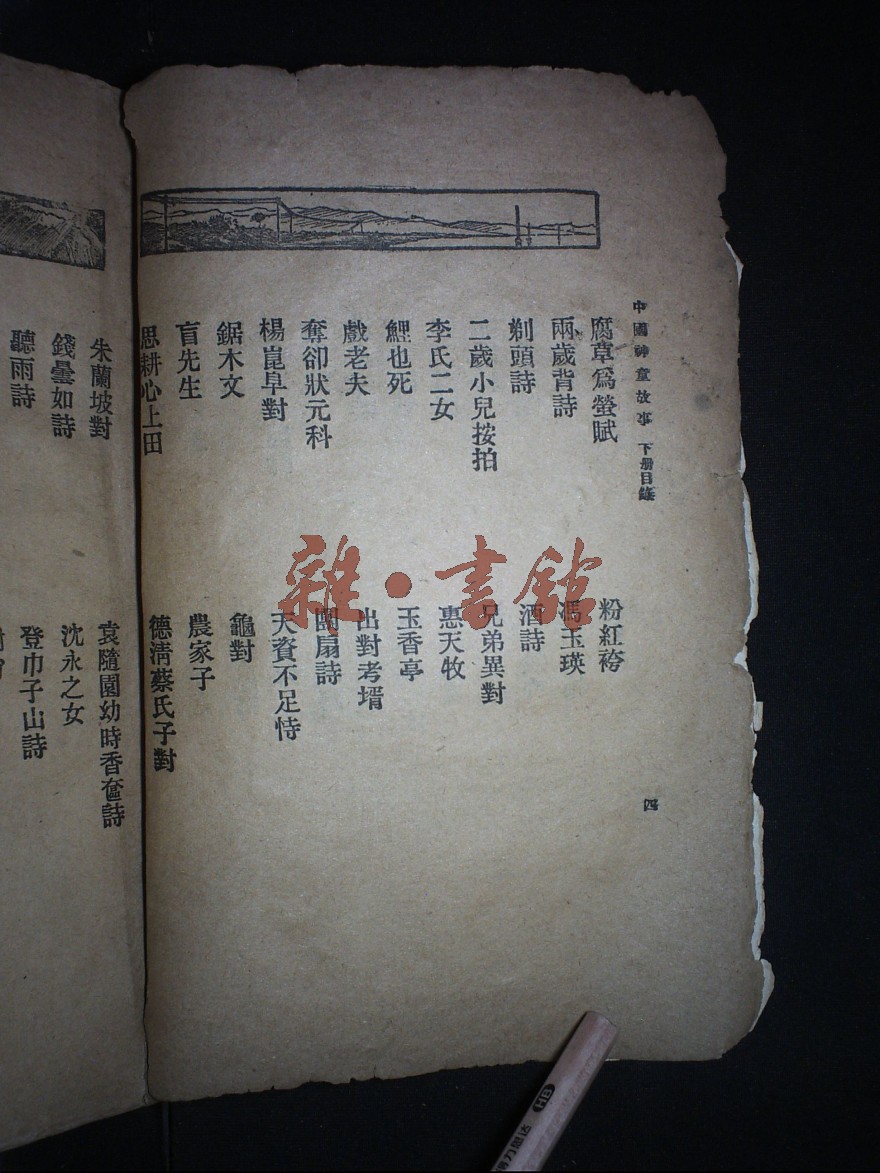 中國神童故事 下册目錄
四
腐草爲螢賦
兩歲背詩
剃頭詩
二歲小兒按拍
李氏二女
鯉也死
戲老夫
奪卻狀元科
楊崑阜對
鋸木文
盲先生
思耕心上田
粉紅袴
馮玉瑛
酒詩
兄弟異對
惠天牧
玉香亭
出對考壻
團扇詩
天資不足恃
龜對
農家子
德清蔡氏子對
朱蘭坡對
錢曇如詩
聽雨詩
袁隨園幼時香奩詩
沈永之女
登巾子山詩
雜·書館
HB